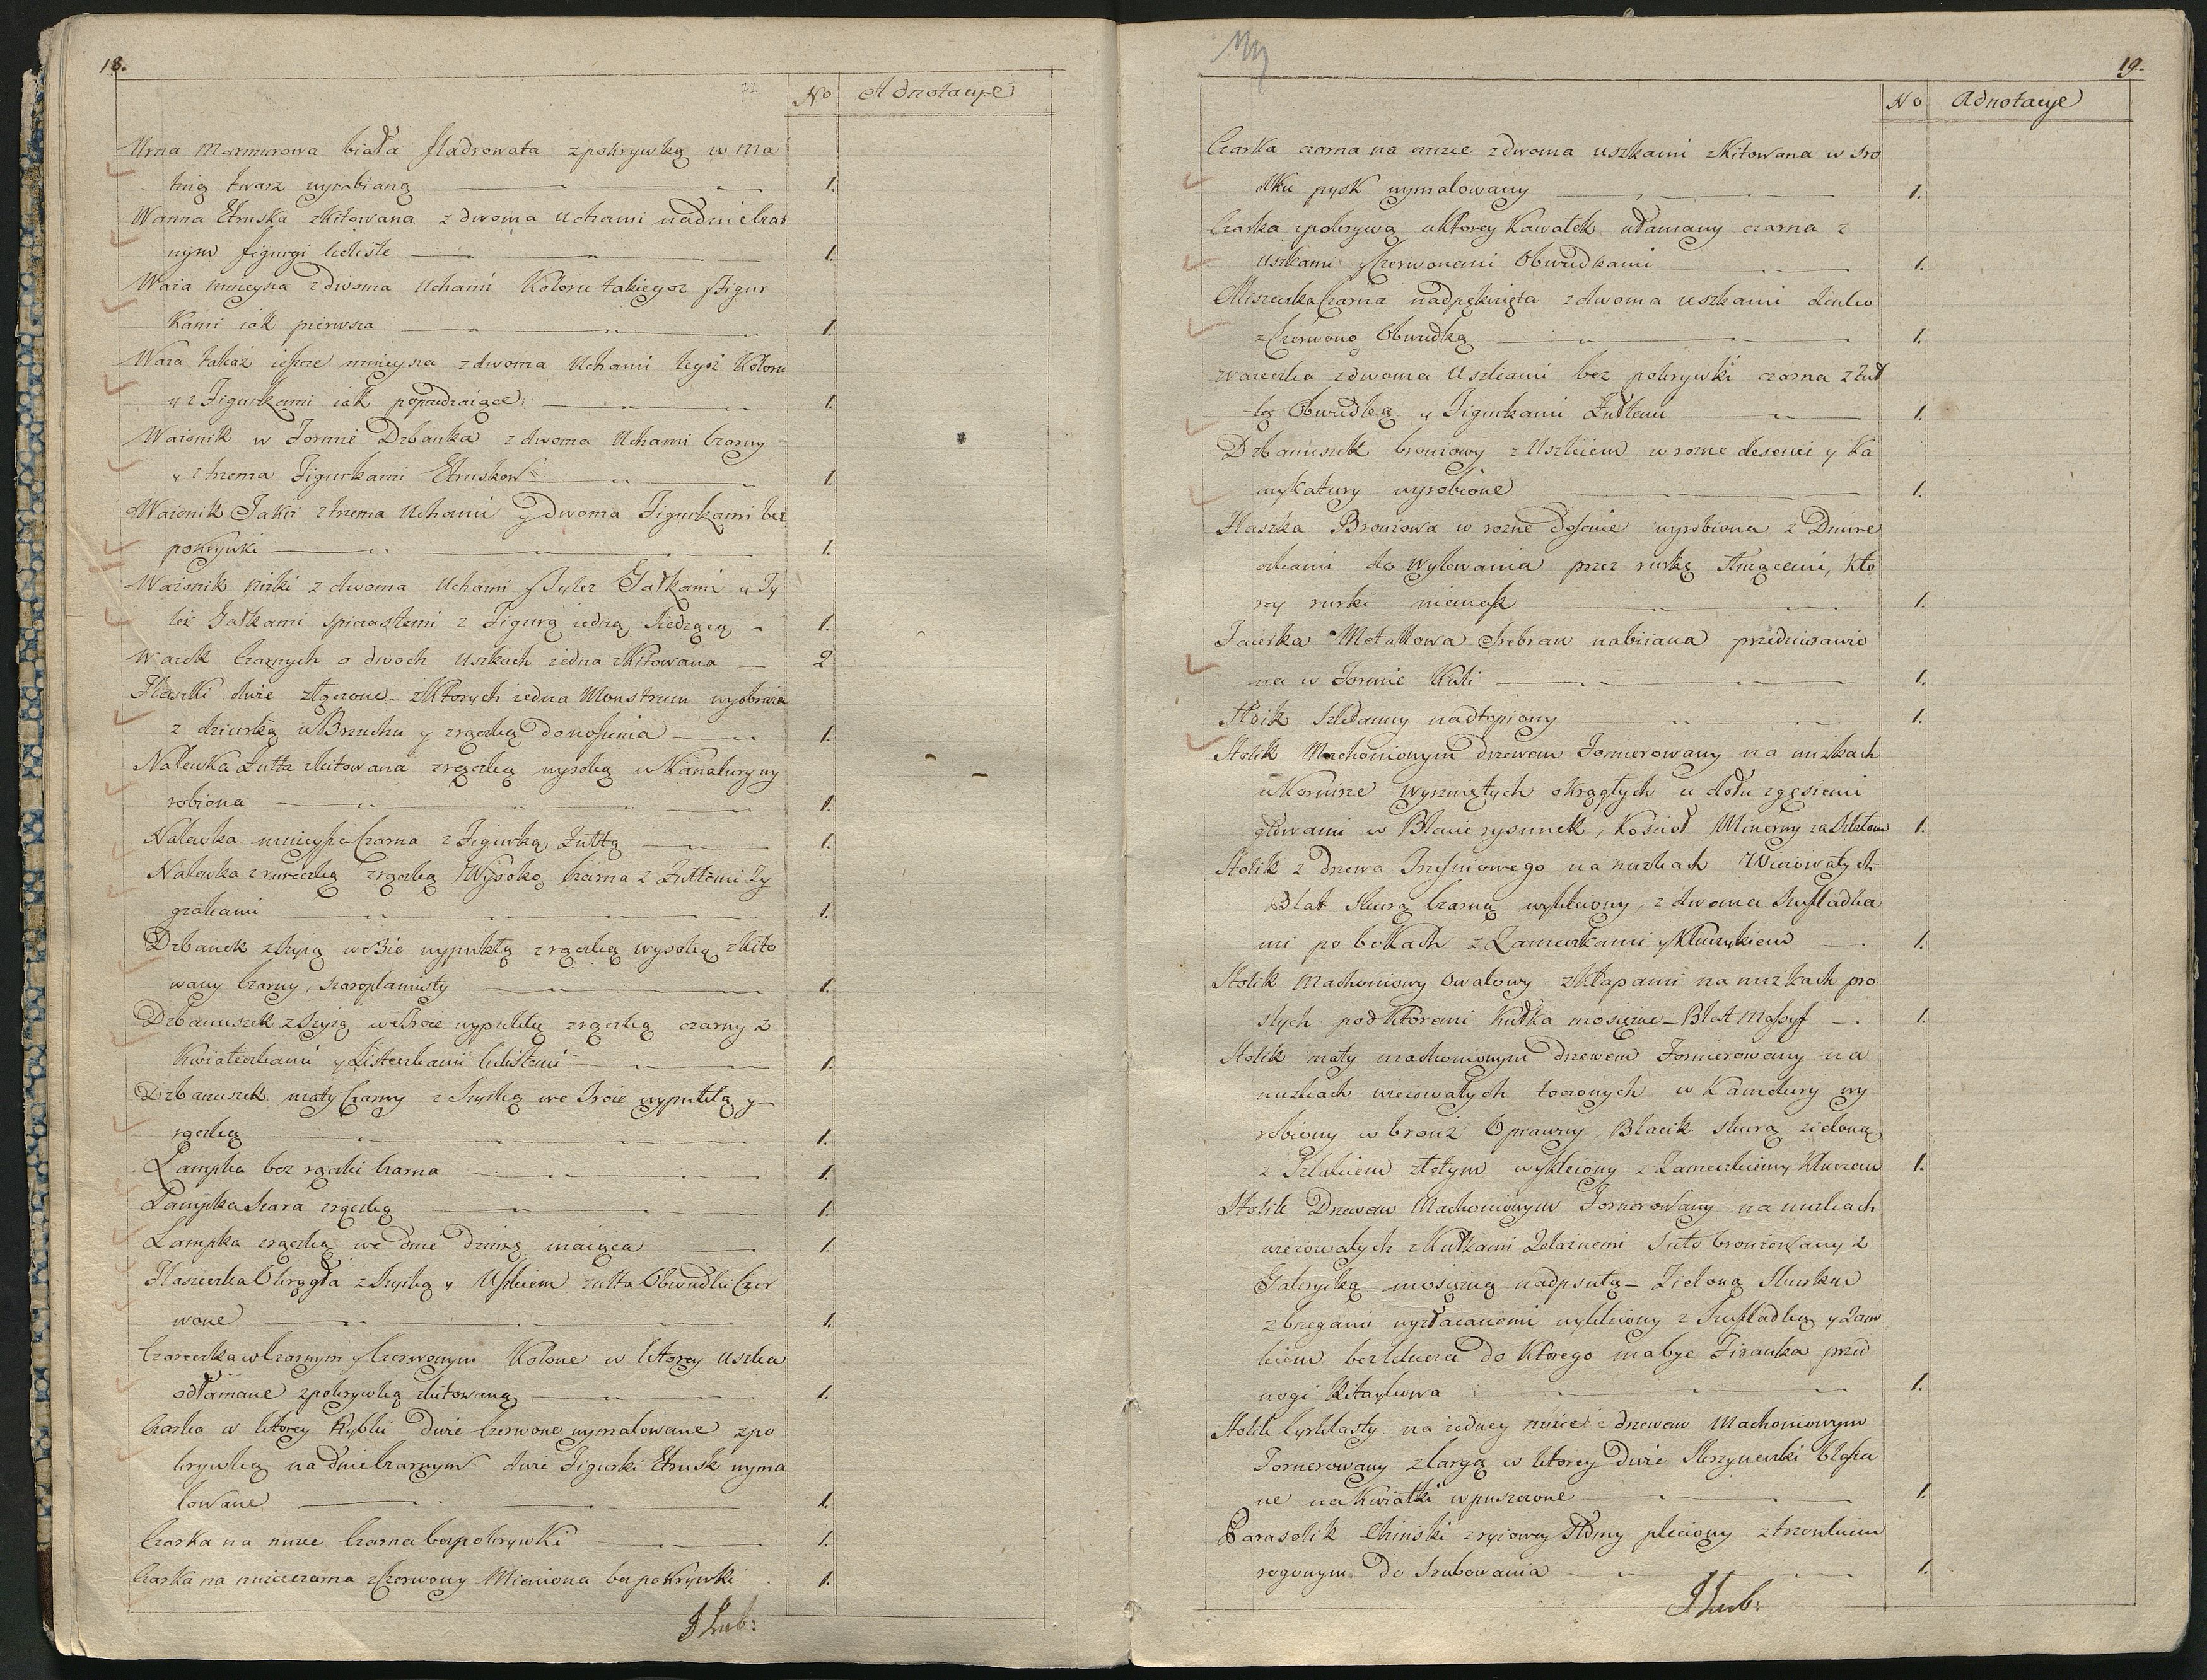 18.
No Adnotacye
Urna Marmurowa biała fladrowata z pokrywką w Ma
tnią twarz wyrobianą 1.
Wanna Etruska zkitowana z dwoma Uchami na dnie czar
nym figurgi 1.
Waza mnieysza z dwoma Uchami Koloru takiegoż y Figur
kami iak pierwsza 1.
Waza takaż ieszcze mnieysza z dwoma Uchami tegoż Koloru
y z Figurkami iak poprzedzaiące 1.
Wazonik w Formie Dzbanka z dwoma Uchami Czarny
y z trzema Figurkami Etruskow 1.
Wazonik Taki z trzema Uchami y dwoma Figurkami bez
pokrywki 1.
Wazonik nizki z dwoma Uchami y Tylez Gałkami y Ty
leż Gałkami spiczastemi z Figurą iedną siedzącą 1.
Wazek Czarnych o dwoch uszkach iedna zkitowana 2
Flaszki dwie złączone z których iedna Monstrum wyobraża
z dziurką w Brzuchu y z rączką do noszenia 1.
Nalewka żułta zkitowana z rączką wysoką w Kanalury wy
robiona 1.
Nalewka mnieysza Czarna z Figurką żułtą 1.
Nalewka z rureczką z rączką Wysoką Czarna z żułtemi Zy
gzakami 1.
Dzbanek z szyią w obie wypukłą z rączką wysoką zkito
wany Czarny, szaroplamisty 1.
Dzbanuszek z szyią we srodę wypukłą z rączką czarny z
Kwiateczkami y Listeczkami 1.
Dzbanuszek mały Czarny z Szyiką we wypukłą y
rączką 1.
Lampka bez rączki Czarna 1.
Lampka Szara z rączką 1.
Lampka z rączką we dnie Dziurę maiąca 1.
Flaszeczka Okrągła z Szyiką y Uszkiem żułta Obwudki Czer
wone 1.
Czareczka w Czarnym y Czerwonym Kolorze w Ktorey uszka
odłamane z pokrywką zkitowaną 1.
Czarka w ktorey Rybki Dwie Czerwone wymalowane z po
krywką na dnie Czarnym dwie Figurki Etrusk wyma
lowane 1.
Czarka na nużce Czarna bez pokrywki 1.
Czarka na nużce czarna z Czerwony Mieniona bez pokrywki 1.
19.
No Adnotacye
Czarka czarna na nużce z dwoma uszkami zkitowana w sro
dku pysk wymalowany 1.
Czarka z pokrywą u ktorey Kawałek ułamany czarna z
uszkami y Czerwonemi Obwudkami 1.
Miseczka Czarna nadpęknięta z dwoma uszkami
z Czerwoną Obwudką 1.
Wazeczka z dwoma Uszkami bez pokrywki czarna z żuł
tą Obwudką y Figurkami Żułtemi 1.
Dzbanuszek bronzowy z Uszkiem w rożne desenie y Ka
mykatury wyrobione 1.
Flaszka Bronzowa w rożne desenie wyrobiona z Dwure
czkami do wylewania przez rurkę, kto
rey rurki niemasz 1.
Faierka Metallowa Srebrem nabiiana przedziurawio
na w Formie Kuli 1.
Słoik Szklanny nadtopiony 1.
Stolik Machoniowym Drzewem Fornerowany na nużkach
w Kornisze Wyrzniętych okrągłych u dołu z gęsiemi
głowami w Blacie rysunek, Kościoł Minerwy za szkłem 1.
Stolik z Drzewa Trzesniowego na nużkach Wiciowatych
Blat skurą Czarną wykleiony, z dwoma Szufladka
mi po bokach z Zameczkami y Kluczykiem 1.
Stolik Machoniowy Owalowy z Klapami na nużkach pro
stych pod ktoremi Kułka mosięzne Blat Massyf 1.
Stolik mały machoniowym Drzewem Fornerowany na
nużkach wiciowatych toczonych w Kanelury wy
robiony w bronz Oprawny Blacik skurą zieloną
z Szlakiem złotym wykleiony z Zameczkiem y Kluczem 1.
Stolik Drzewem Machoniowym Fornerowany na nużkach
wiciowatych z Kułkami Żelaznemi Suto bronzowany z
Galeryiką mosięzną nadpsutą Zieloną Skurką
z brzegami wyzłacanemi wykleiony z Szufladką y Zam
kiem bez klucza do Ktorego ma bydz Firanka przed
nogi Kitaykowa 1.
Stolik Cyrklasty na iedney nużce z drzewem Machoniowym
Fornerowany z targą w ktorey Dwie Skrzyneczki blasza
ne na Kwiatki wpuszczone 1.
Parasolik Chinski z ryżowey Słomy pleciony z trzonkiem
rogowym Do Srubowania 1.